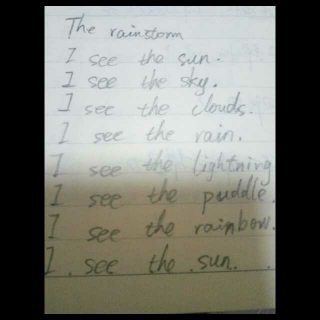 The rainstorm
I see the sun.
I see the sky.
I see the clouds.
I see the rain.
I see the lightning
I see the puddle.
I see the rainbow.
I see the sun.